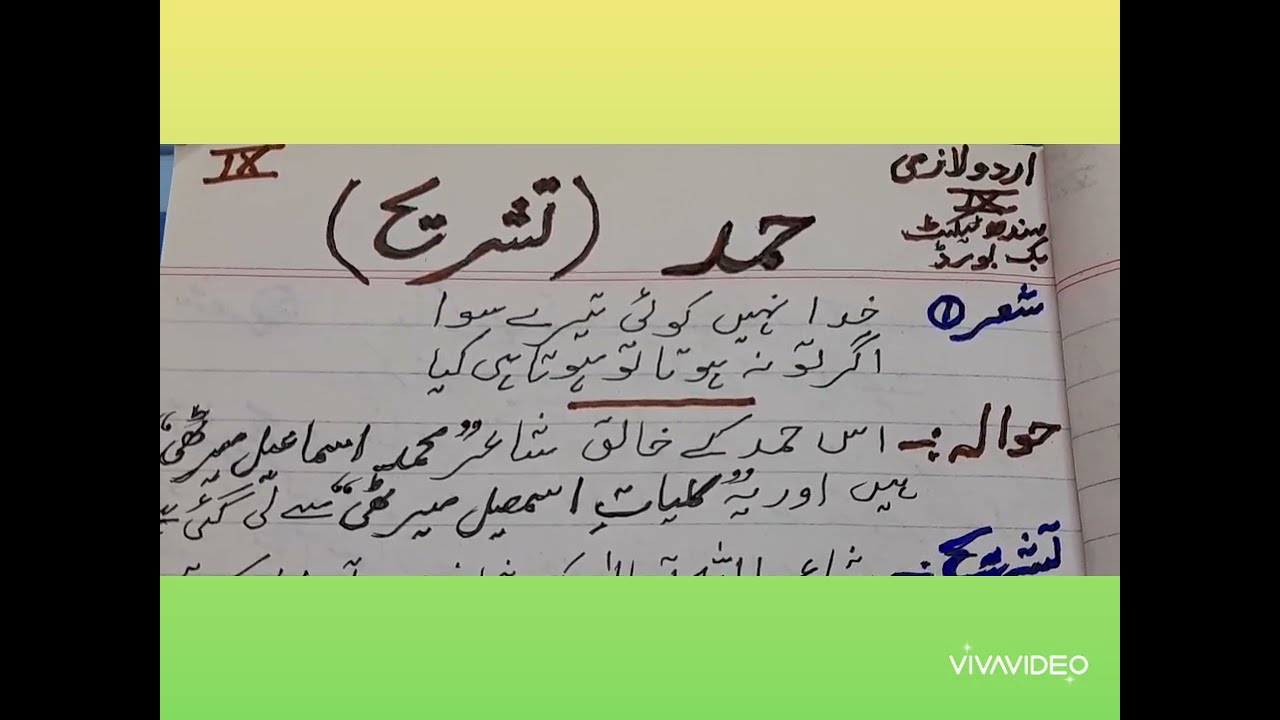 IX
اردو لازمی
IX
سندھ ٹیکسٹ
بک بورڈ
حمد (تشریح)
شعر ①
خدا نہیں کوئی تیرے سوا
اگر تو نہ ہوتا تو ہوتا ہی کیا
حوالہ :- اس حمد کے خالق شاعر "محمد اسماعیل میرٹھی"
ہیں اور یہ "کلیاتِ اسمعیل میرٹھی" سے لی گئی ہے
تشریح :- شاعر اللہ تعالیٰ کی
VIVAVIDEO